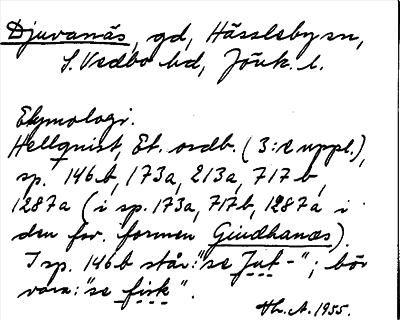 Djuvanäs, gd, Hässleby sn,
S. Vedbo hd, Jönk. l.
Etymologi.
Hellquist, Et. ordb. (3:e uppl.),
sp. 146b, 173a, 213a, 717b,
1287a (i sp. 173a, 717b, 1287a i
den fsv. formen Giudhanæs).
I sp. 146b står: "se Jut-"; bör
vara: "se fisk".
Th. A. 1955.